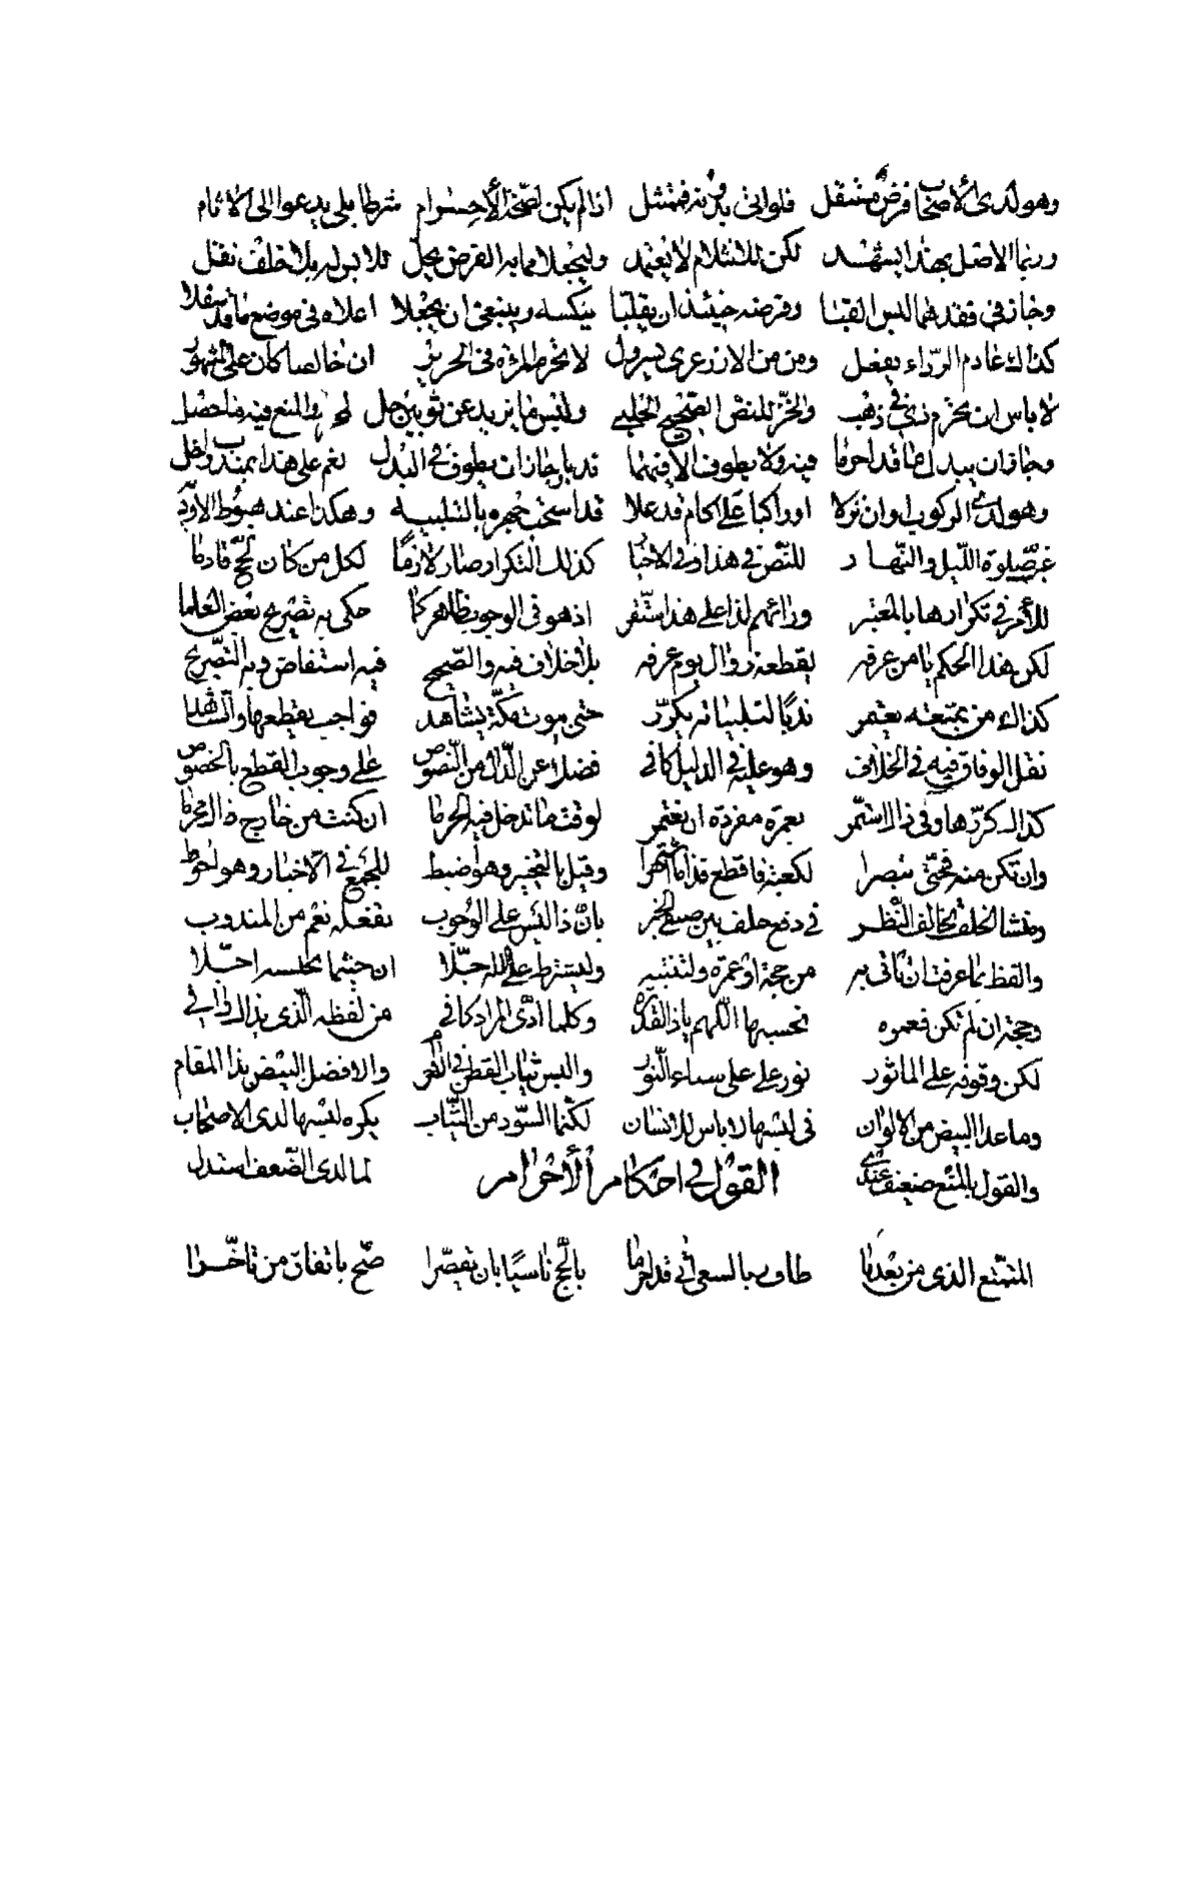 وهو لدى الأصحاب فرض مستقل فلو اتى بدونه فممتثل اذ لم يكن لصحة الأحرام شرطا بلى يدعو الى الاثام
وربما الاصل بهذا يشهد لكن للاستلام لا يعتمد وليجعلا مما به الفرض يحل للابس له بلا خلف نقل
وجاز في فقدهما لبس القبا وفرضه حينئذ ان يقلبا ينكسه وينبغي ان يجعلا اعلاه في موضع ما قد سفلا
كذاك عادم الرداء يفعل ومن من الازر عرى يسرول لا تحرم المرئة في الحرير ان خالصا كان على المشهور
لا باس ان يحرم في ذهب والخز للنص الصحيح الحلبي ولبس ما يزيد عن ثوبين حل والمنع فيه ما حصل
وجاز ان يبدل ما قد احرما فيه ولا يطوف الا فيهما قد بل جاز ان يطوف في البدل نعم على هذا
وهو لدى الركوب او ان نزلا او راكبا على اكام قد علا قد استحب جهره بالتلبيه وهكذا عند هبوط الاوديه
غب صلوة الليل والنهار للنص في هذا وفي الاخبار كذلك التكرار صار لازما لكل من كان لحج قادما
للأمر في تكرارها بالمعتبر ورائهم لذا على هذا استقر اذ هو في الوجوب ظاهر كما حكى به تصريح بعض العلما
لكن هذا الحكم يا من عرفه يقطعه زوال يوم عرفه بلا خلاف فيه والصحيح فيه استفاض وبه التصريح
كذاك من بمتعته يعتمر ندبا لتلبياته يكرر حتى بيوت مكة يشاهد فواجب يقطعها والشاهد
نقل الوفاق فيه في الخلاف وهو عليه في الدليل كافي فضلا عن الذاك من النصوص على وجوب القطع بالخصوص
كذاك كررها وفي ذاك استمر بعمرة مفردة ان تعتمر لوقت ما تدخل فيه الحرما ان كنت من خارج ذاك محرما
وان تكن منه فحتى تبصرا لكعبة فاقطع وقيل بالتخيير وهو اضبط للجمع في الاخبار وهو احوط
ومنشأ الخلف تخالف النظر في دفع خلف بين الخبر بان ذا ليس على الوجوب نفعله نعم من المندوب
والفظ بما عرفت ان تاتي به من حجة او عمرة ولتنتبه وليشترط على الله جلا ان حيثما يحبسه احلا
وحجة ان لم تكن فعمره تحسبها اللهم يا ذا القدره وكلما ادى المراد كافي من لفظه الذي بذاك وافي
لكن وقوفه على الماثور نور على على سناء النور والبس ثياب القطن في والافضل البيض بذا المقام
وما عدا البيض من الالوان في لبسها لا باس للانسان لكنما السود من الثياب يكره لبسها لدى الاصحاب
والقول بالمنع ضعيف عندي لما لدى الضعف استدل
القول في احكام الأحرام
المتمتع الذي من بعد ما طاف بالسعي اتى قد احرما بالحج ناسيا بان يقصرا صح باتفاق من تاخرا